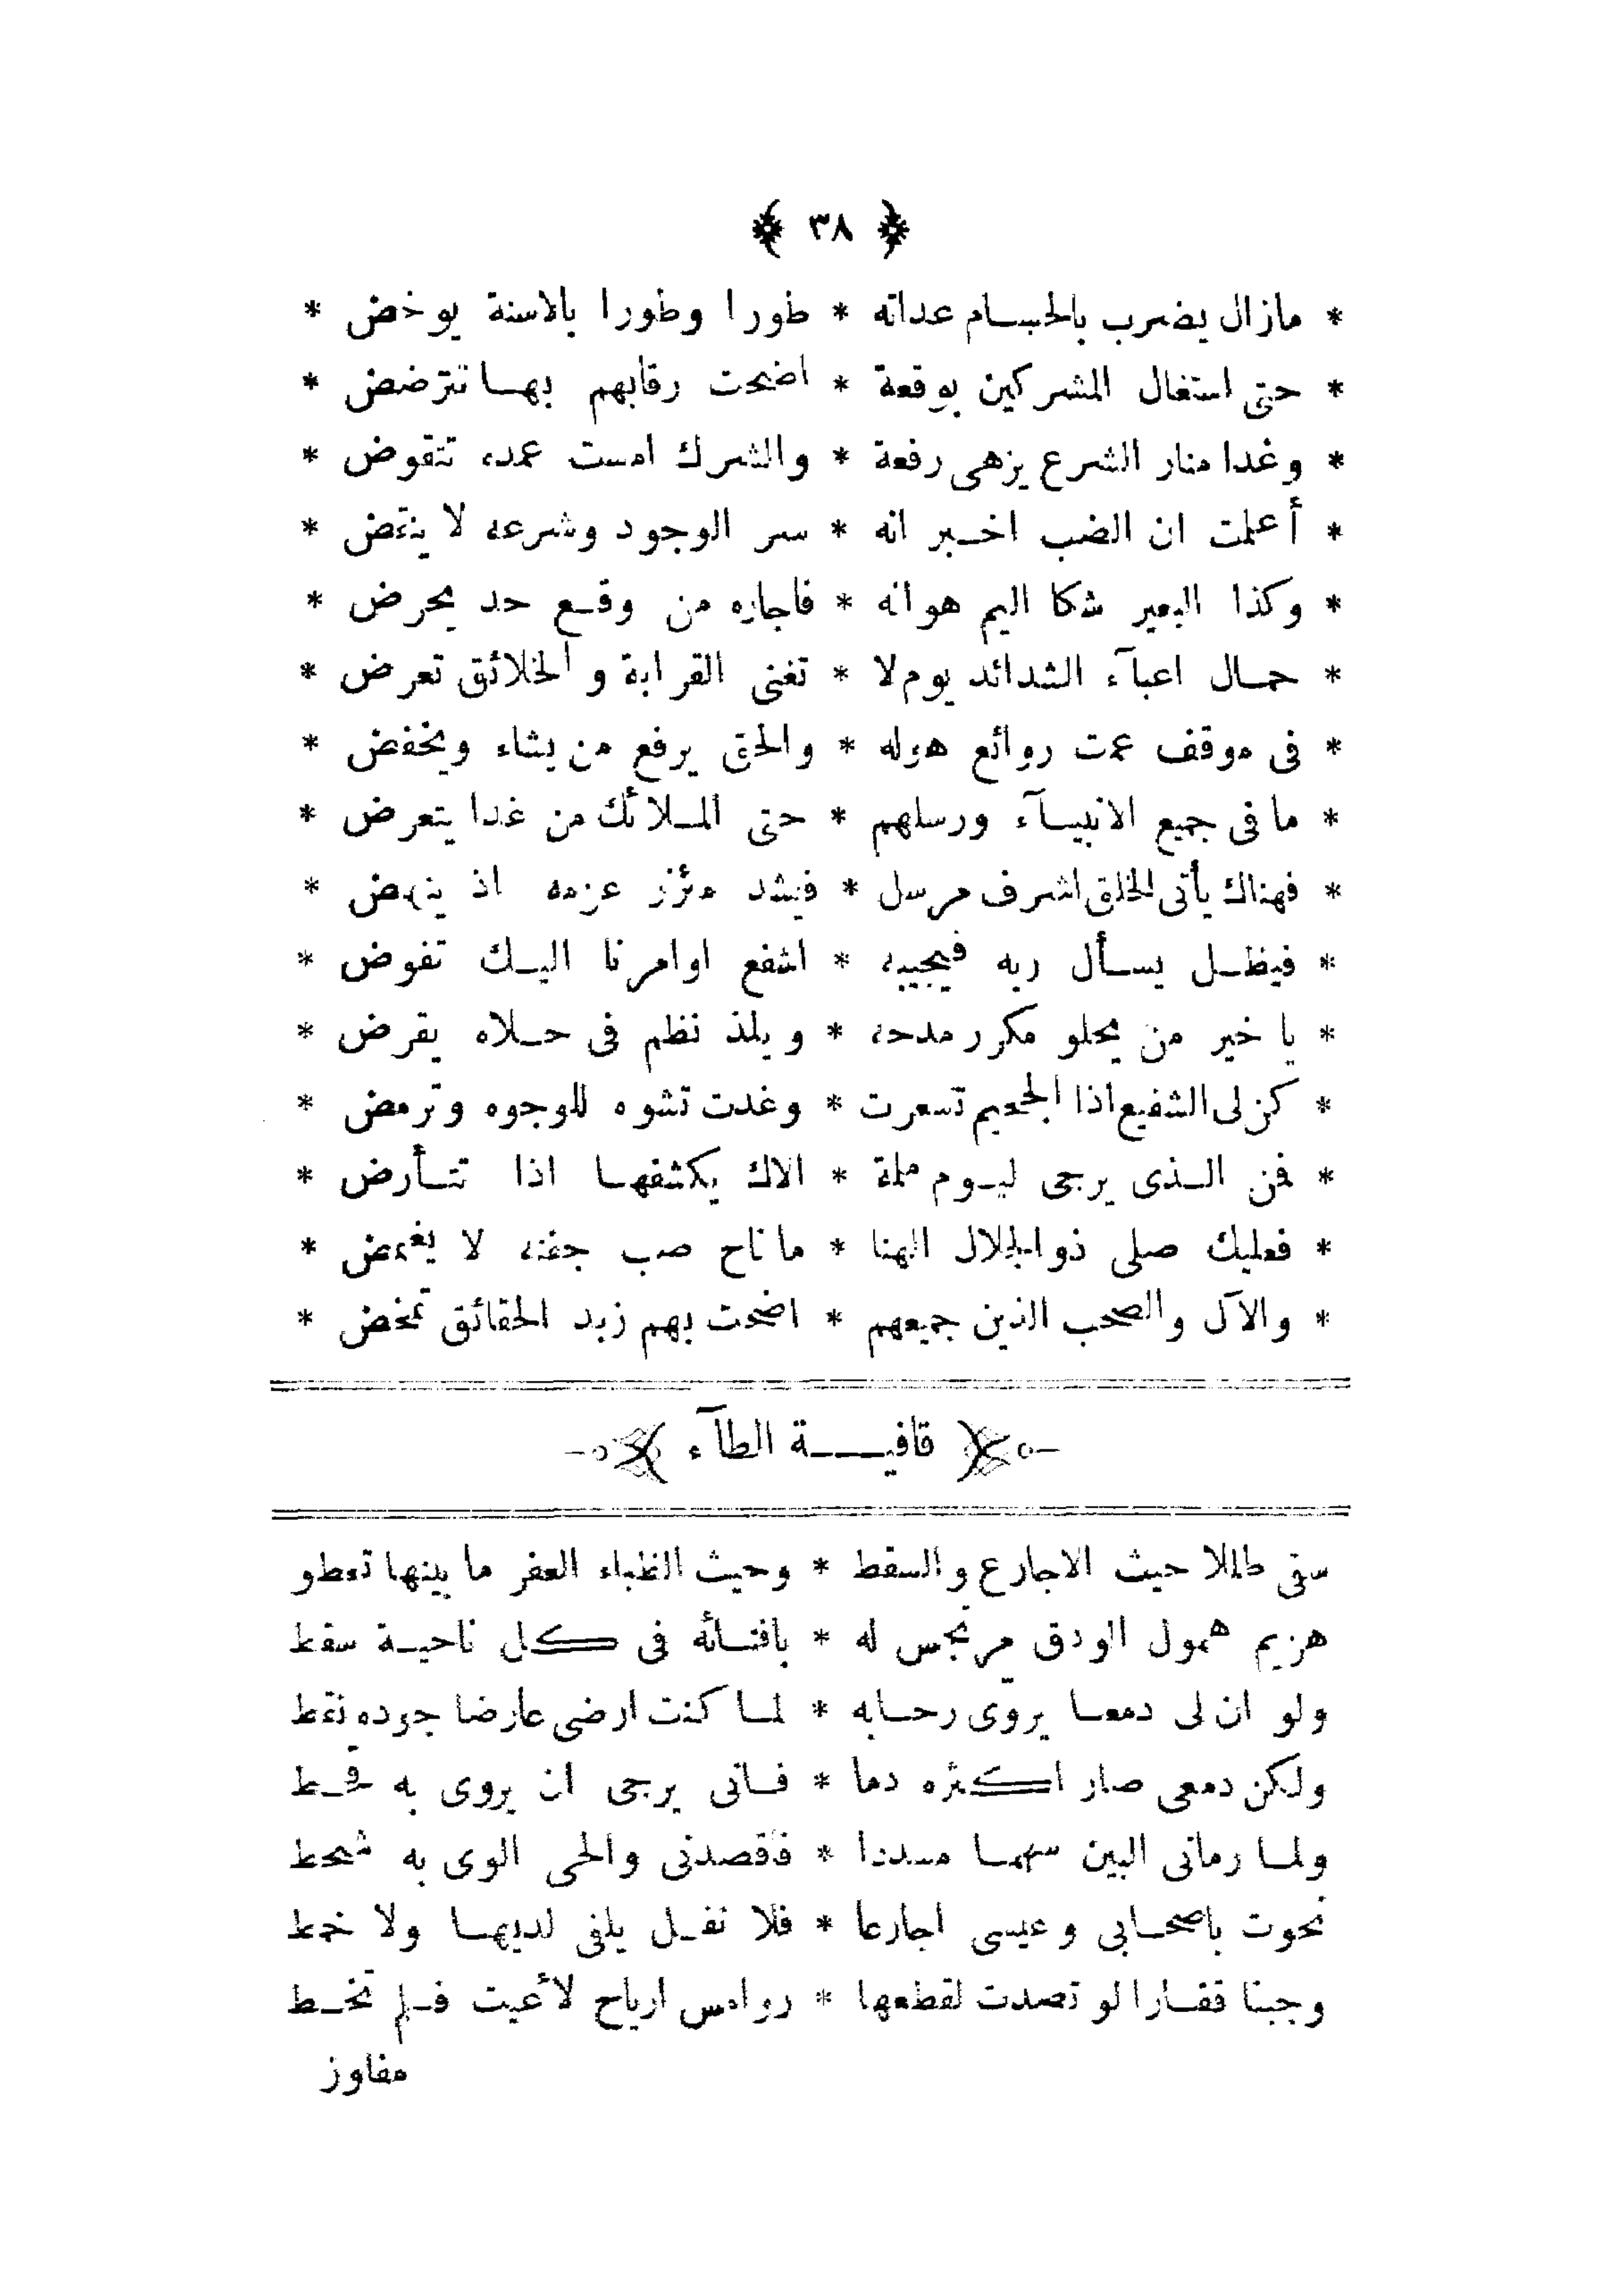 ﴿ ٣٨ ﴾
* مازال يضرب بالحسام عداته * طورا وطورا بالاسنة يوخض *
* حتى استغال المشركين بوقعة * اضحت رقابهم بها تترضض *
* وغدا منار الشرع يزهى رفعة * والشرك امست عمده تتقوض *
* أعلمت ان الضب اخبر انه * سر الوجود وشرعه لا ينقض *
* وكذا البعير شكا اليم هوانه * فاجاره من وقع حد يحرض *
* حمال اعبآء الشدائد يوم لا * تغنى القرابة والخلائق تعرض *
* فى موقف عمت روائع هوله * والحق يرفع من يشاء ويخفض *
* ما فى جميع الانبيآء ورسلهم * حتى الملائك من غدا يتعرض *
* فهناك يأتى الخلق اشرف مرسل * فيشد مئزر عزمه اذ ينهض *
* فيظل يسأل ربه فيجيبه * اشفع اوامرنا اليك تفوض *
* يا خير من يحلو مكرر مدحه * ويلذ نظم فى حلاه يقرض *
* كن لى الشفيع اذا الجحيم تسعرت * وغدت تشوه للوجوه وترمض *
* فمن الذى يرجى ليوم ملمة * الاك يكشفها اذا تتأرض *
* فعليك صلى ذو الجلال الهنا * ما ناح صب جفنه لا يغمض *
* والآل والصحب الذين جميعهم * اضحت بهم زبد الحقائق تمخض *
قافية الطآء
سقى طللا حيث الاجارع والسقط * وحيث الظباء العفر ما بينها تعطو
هزيم همول الودق مرتجس له * بافنائه فى كل ناحية سقط
ولو ان لى دمعا يروى رحابه * لما كنت ارضى عارضا جوده نقط
ولكن دمعى صار اكثره دما * فانى يرجى ان يروى به قحط
ولما رمانى البين سهما مسددا * فأقصدنى والحى الوى به شحط
نحوت باصحابى وعيسى اجارعا * فلا نفل يلفى لديها ولا خمط
وجبنا قفارا لو تصدت لقطعها * روامس ارياح لأعيت فلم تخط
مفاوز